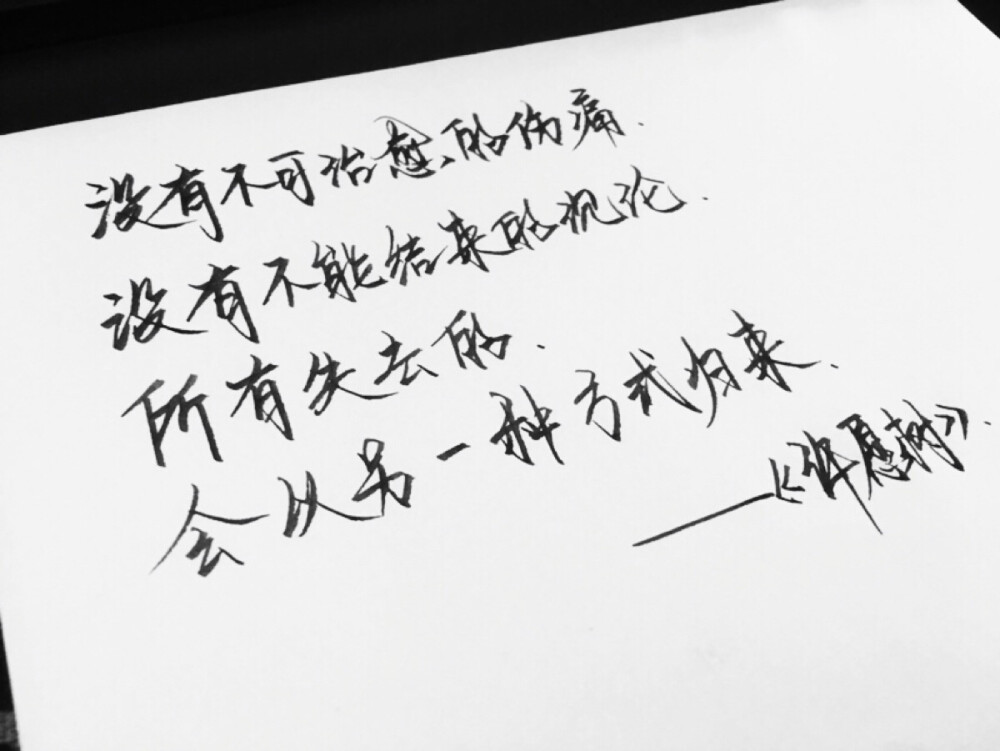 没有不可治愈的伤痛.
没有不能结束的沉沦.
所有失去的.
会以另一种方式归来.
——《许愿树》.